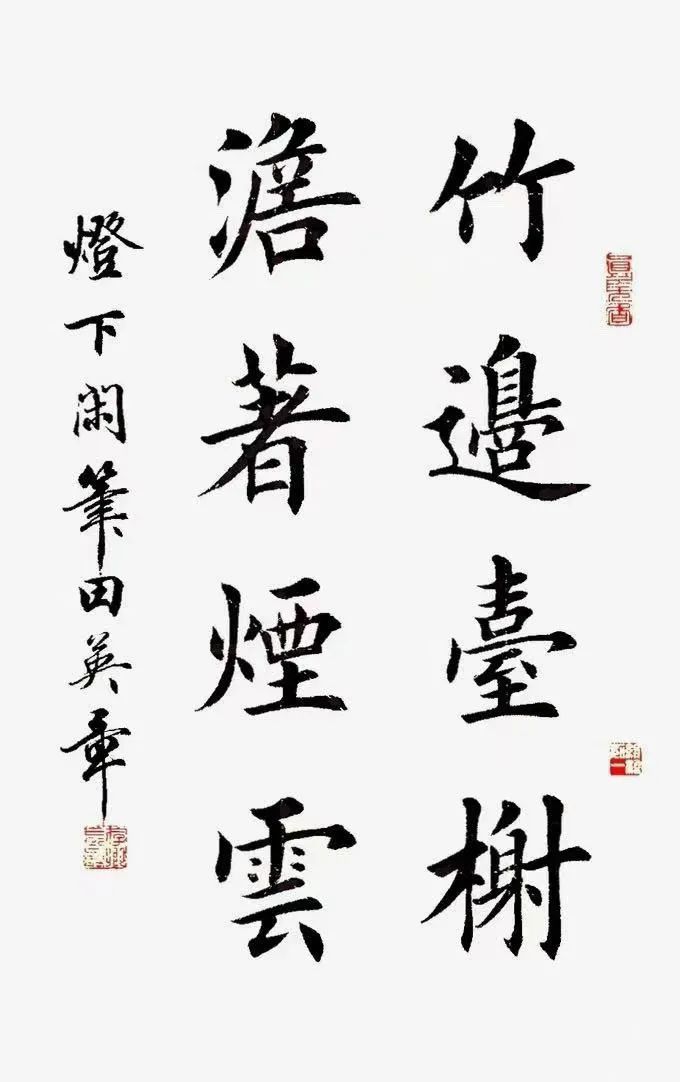 竹邊臺榭
澹著煙雲
燈下闲筆田英章